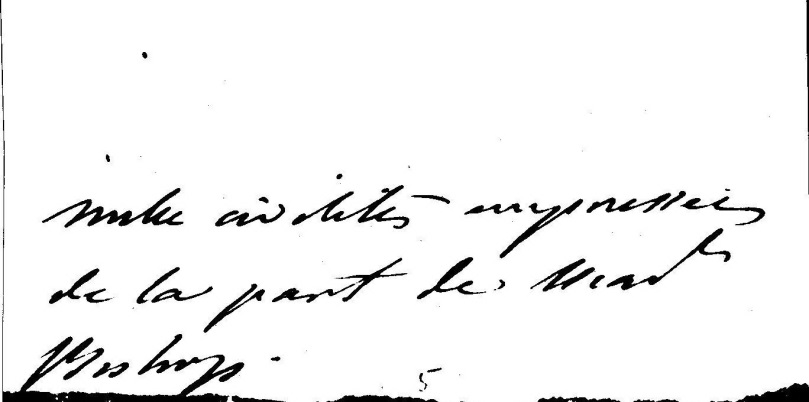 mille civilités empressées
de la part de Mad^e
Bishop.
5